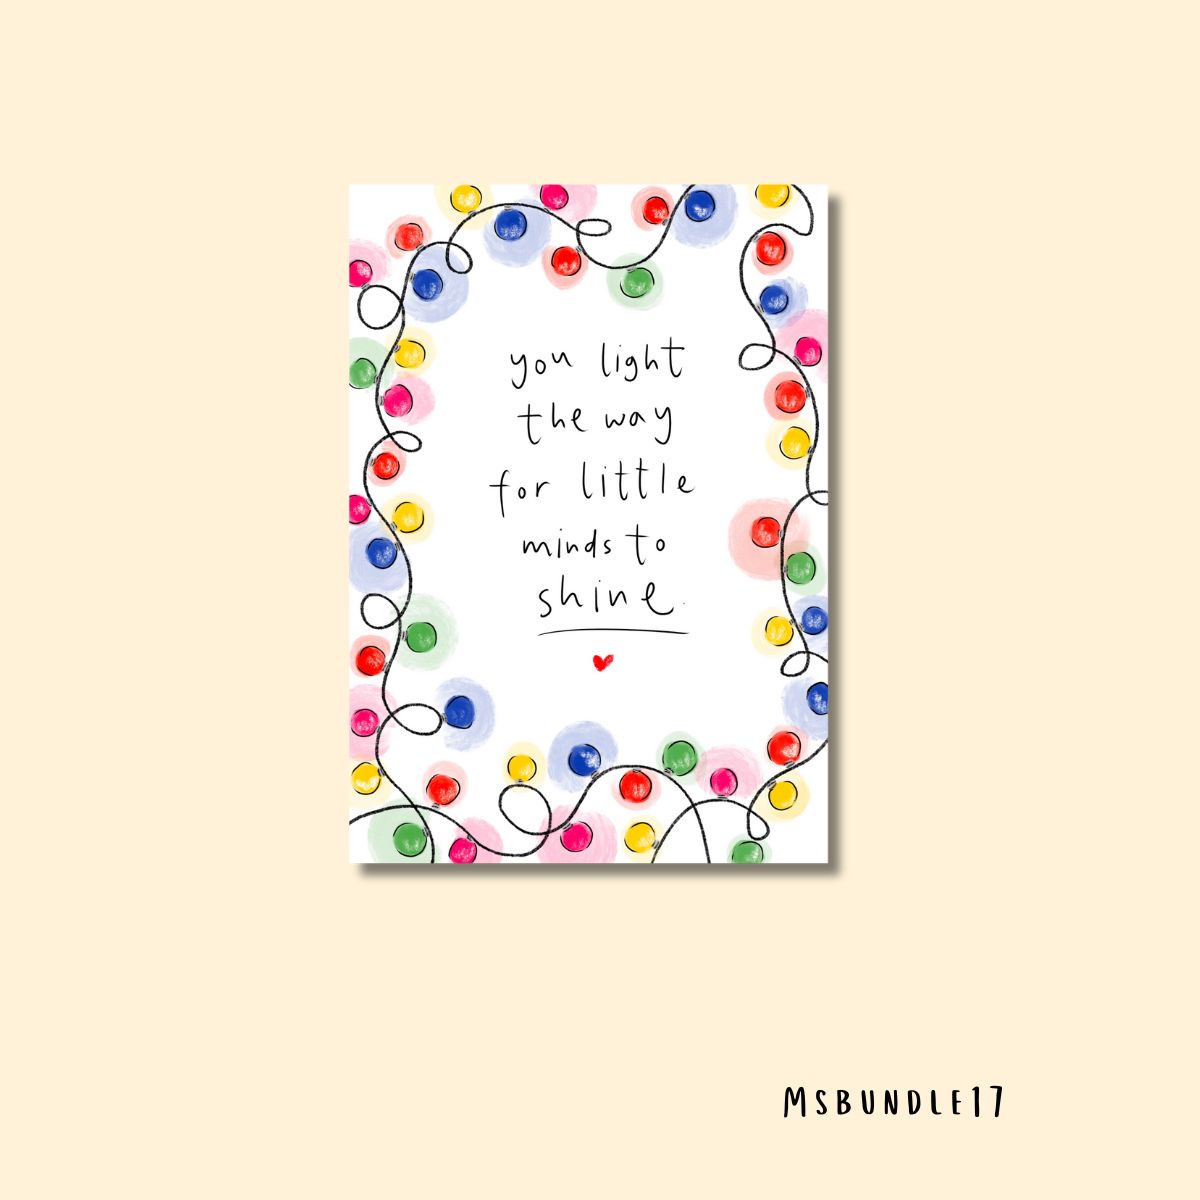 you light
the way
for little
minds to
shine.
MSBUNDLE17